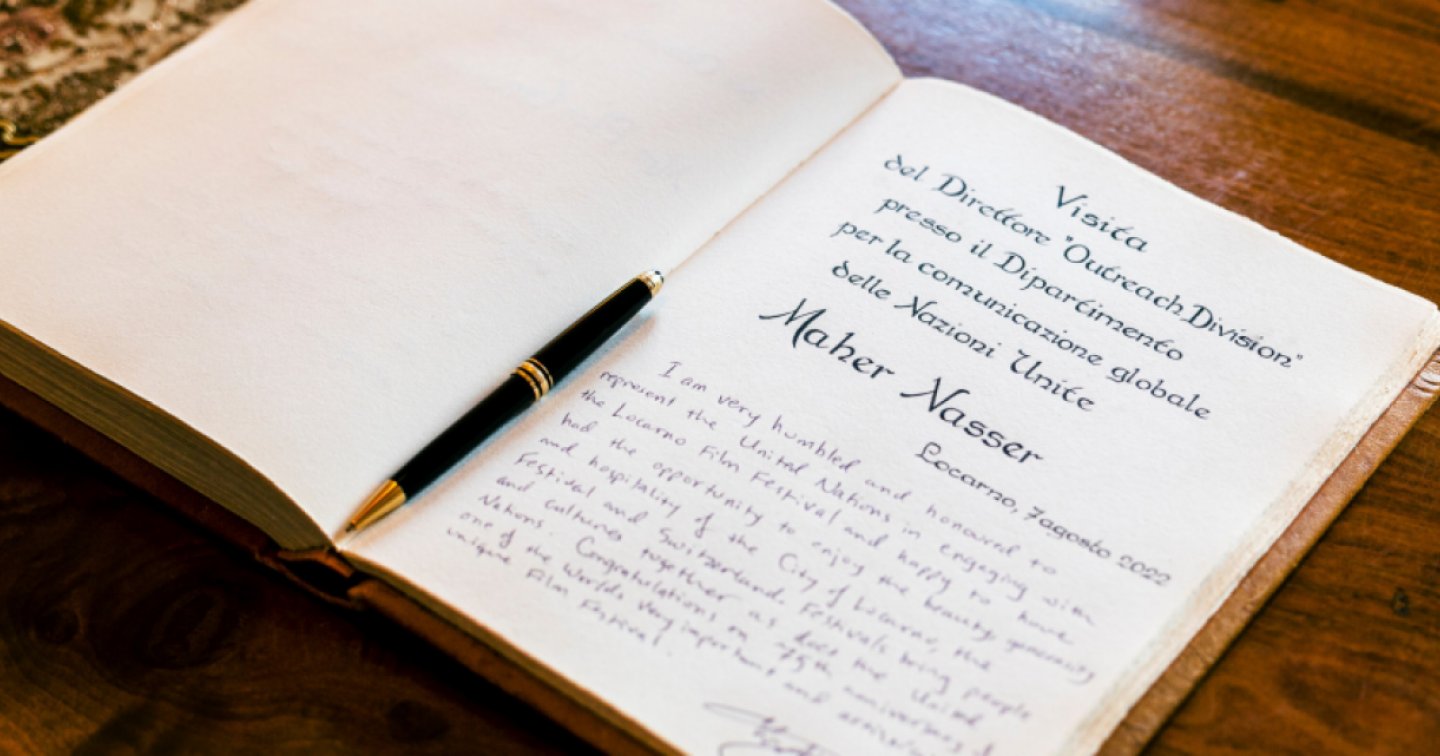 Visita
del Direttore "Outreach Division"
presso il Dipartimento
per la comunicazione globale
delle Nazioni Unite
Maher Nasser
Locarno, 7 agosto 2022
I am very humbled and honoured to
represent the United Nations in engaging with
the Locarno Film Festival and happy to have
had the opportunity to enjoy the beauty generosity
and hospitality of the City of Locarno, the
Festival and Switzerland. Festivals bring people
and cultures together as does the United
Nations. Congratulations on 75th anniversary of
one of the Worlds very important and
unique Film Festival.